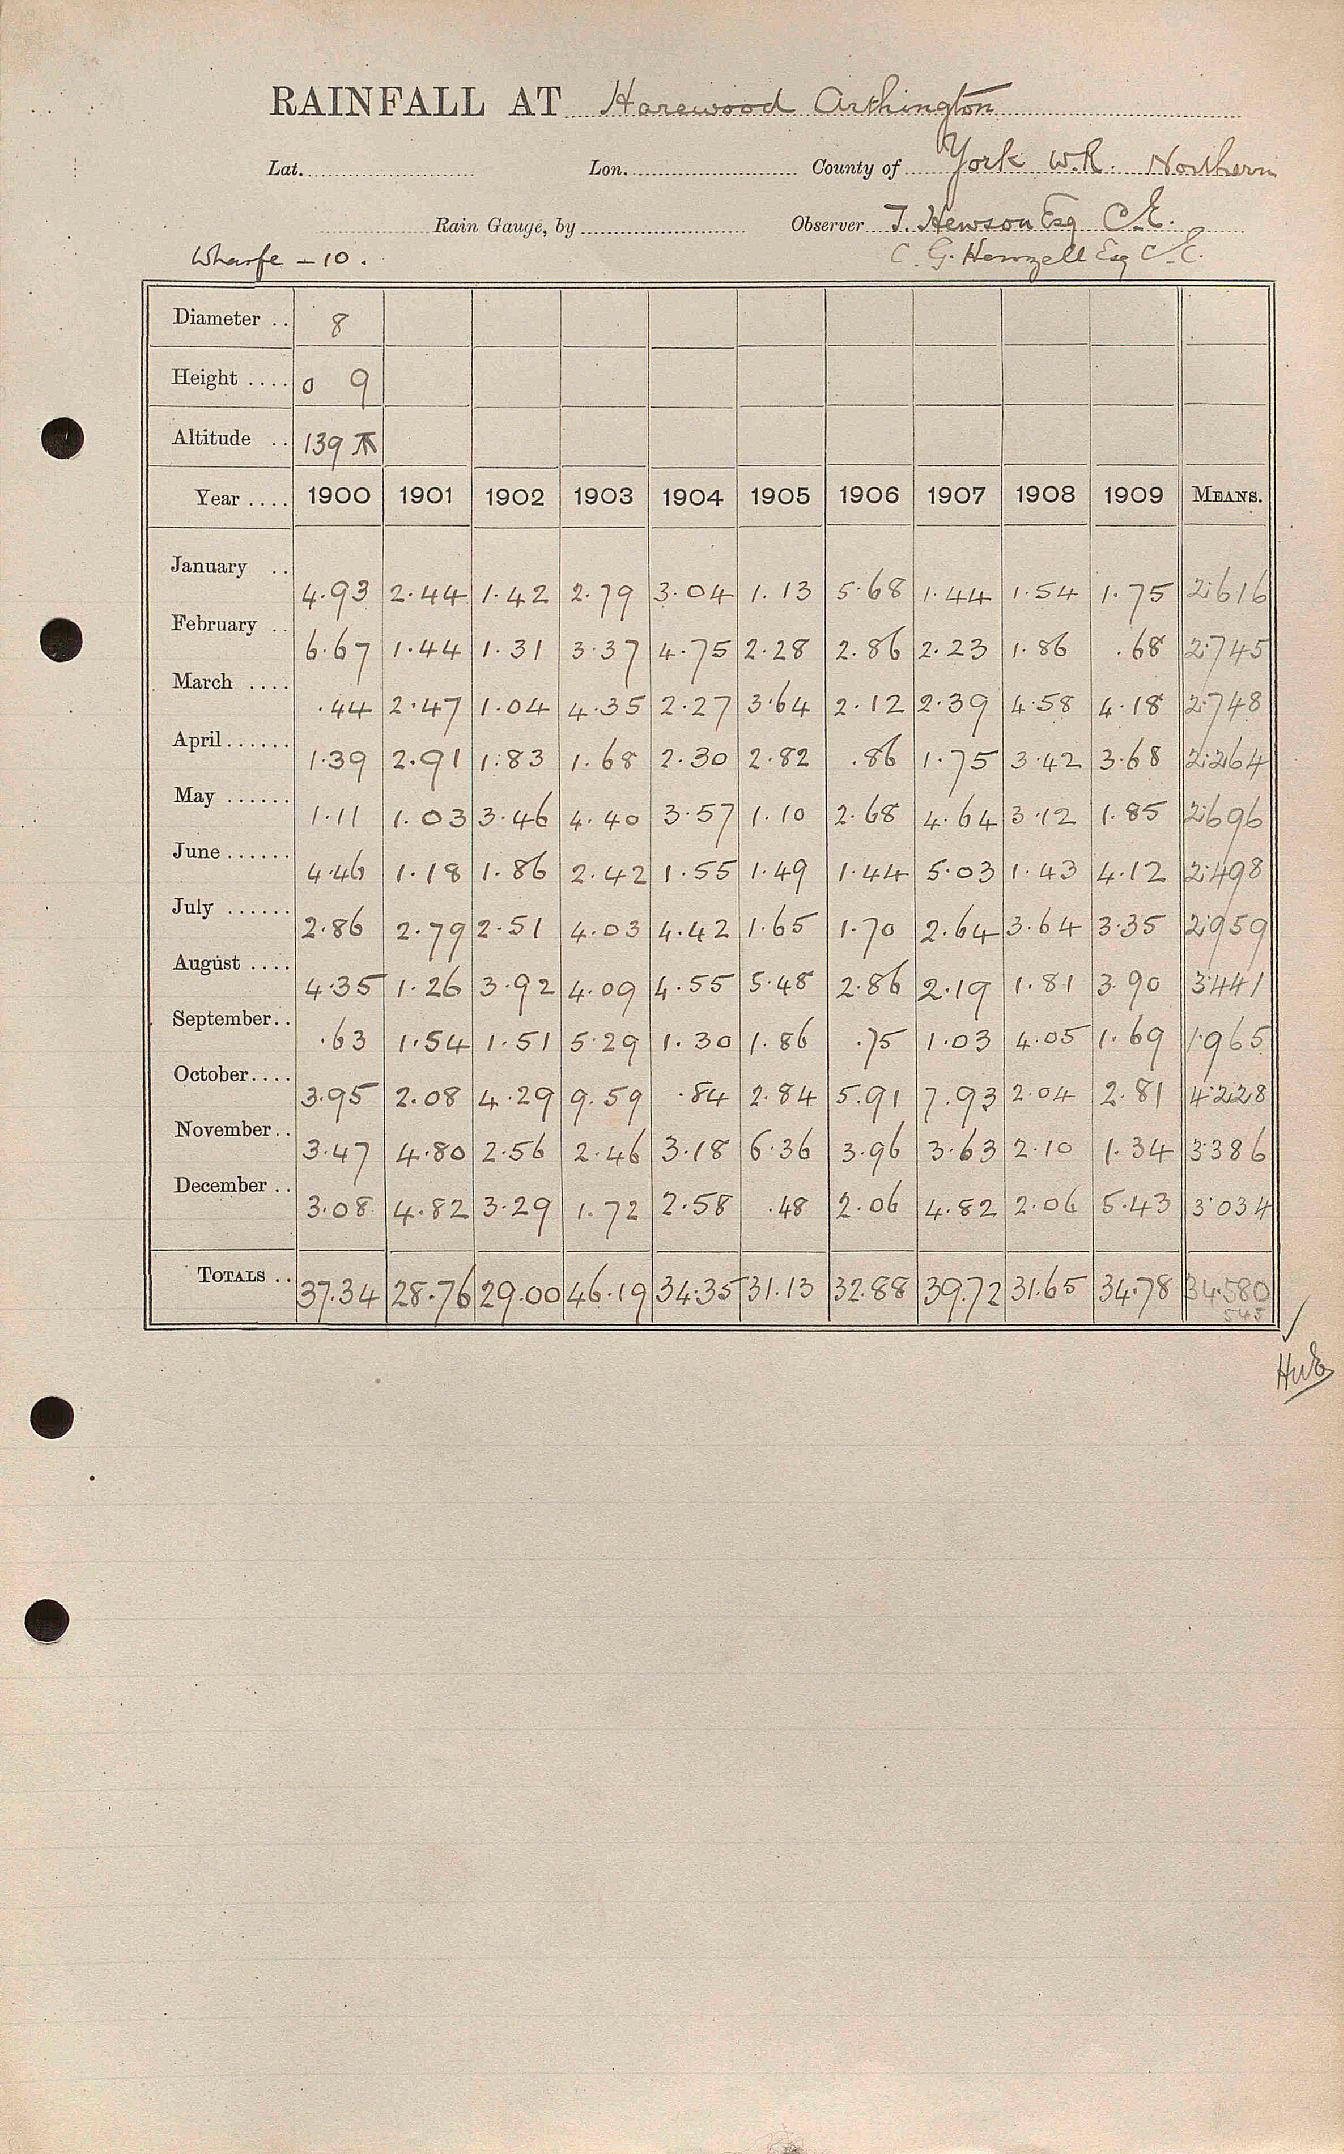 RAINFALL AT Harewood Arthington
Lat. Lon. County of York W.R. Northern
Rain Gauge, by Observer T. Hewson Esq C.E.
Wharfe - 10. C. G. Henzell Esq C.E.
Diameter .. 8
Height .... 0 9
Altitude .. 139
Year .... 1900 1901 1902 1903 1904 1905 1906 1907 1908 1909 MEANS.
January .. 4.93 2.44 1.42 2.79 3.04 1.13 5.68 1.44 1.54 1.75 2.616
February .. 6.67 1.44 1.31 3.37 4.75 2.28 2.86 2.23 1.86 .68 2.745
March .... .44 2.47 1.04 4.35 2.27 3.64 2.12 2.39 4.58 4.18 2.748
April ...... 1.39 2.91 1.83 1.68 2.30 2.82 .86 1.75 3.42 3.68 2.264
May ...... 1.11 1.03 3.46 4.40 3.57 1.10 2.68 4.64 3.12 1.85 2.696
June ...... 4.46 1.18 1.86 2.42 1.55 1.49 1.44 5.03 1.43 4.12 2.498
July ...... 2.86 2.79 2.51 4.03 4.42 1.65 1.70 2.64 3.64 3.35 2.959
August .... 4.35 1.26 3.92 4.09 4.55 5.48 2.86 2.19 1.81 3.90 3.441
September .. .63 1.54 1.51 5.29 1.30 1.86 .75 1.03 4.05 1.69 1.965
October .... 3.95 2.08 4.29 9.59 .84 2.84 5.91 7.93 2.04 2.81 4.228
November .. 3.47 4.80 2.56 2.46 3.18 6.36 3.96 3.63 2.10 1.34 3.386
December .. 3.08 4.82 3.29 1.72 2.58 .48 2.06 4.82 2.06 5.43 3.034
TOTALS .. 37.34 28.76 29.00 46.19 34.35 31.13 32.88 39.72 31.65 34.78 34.580